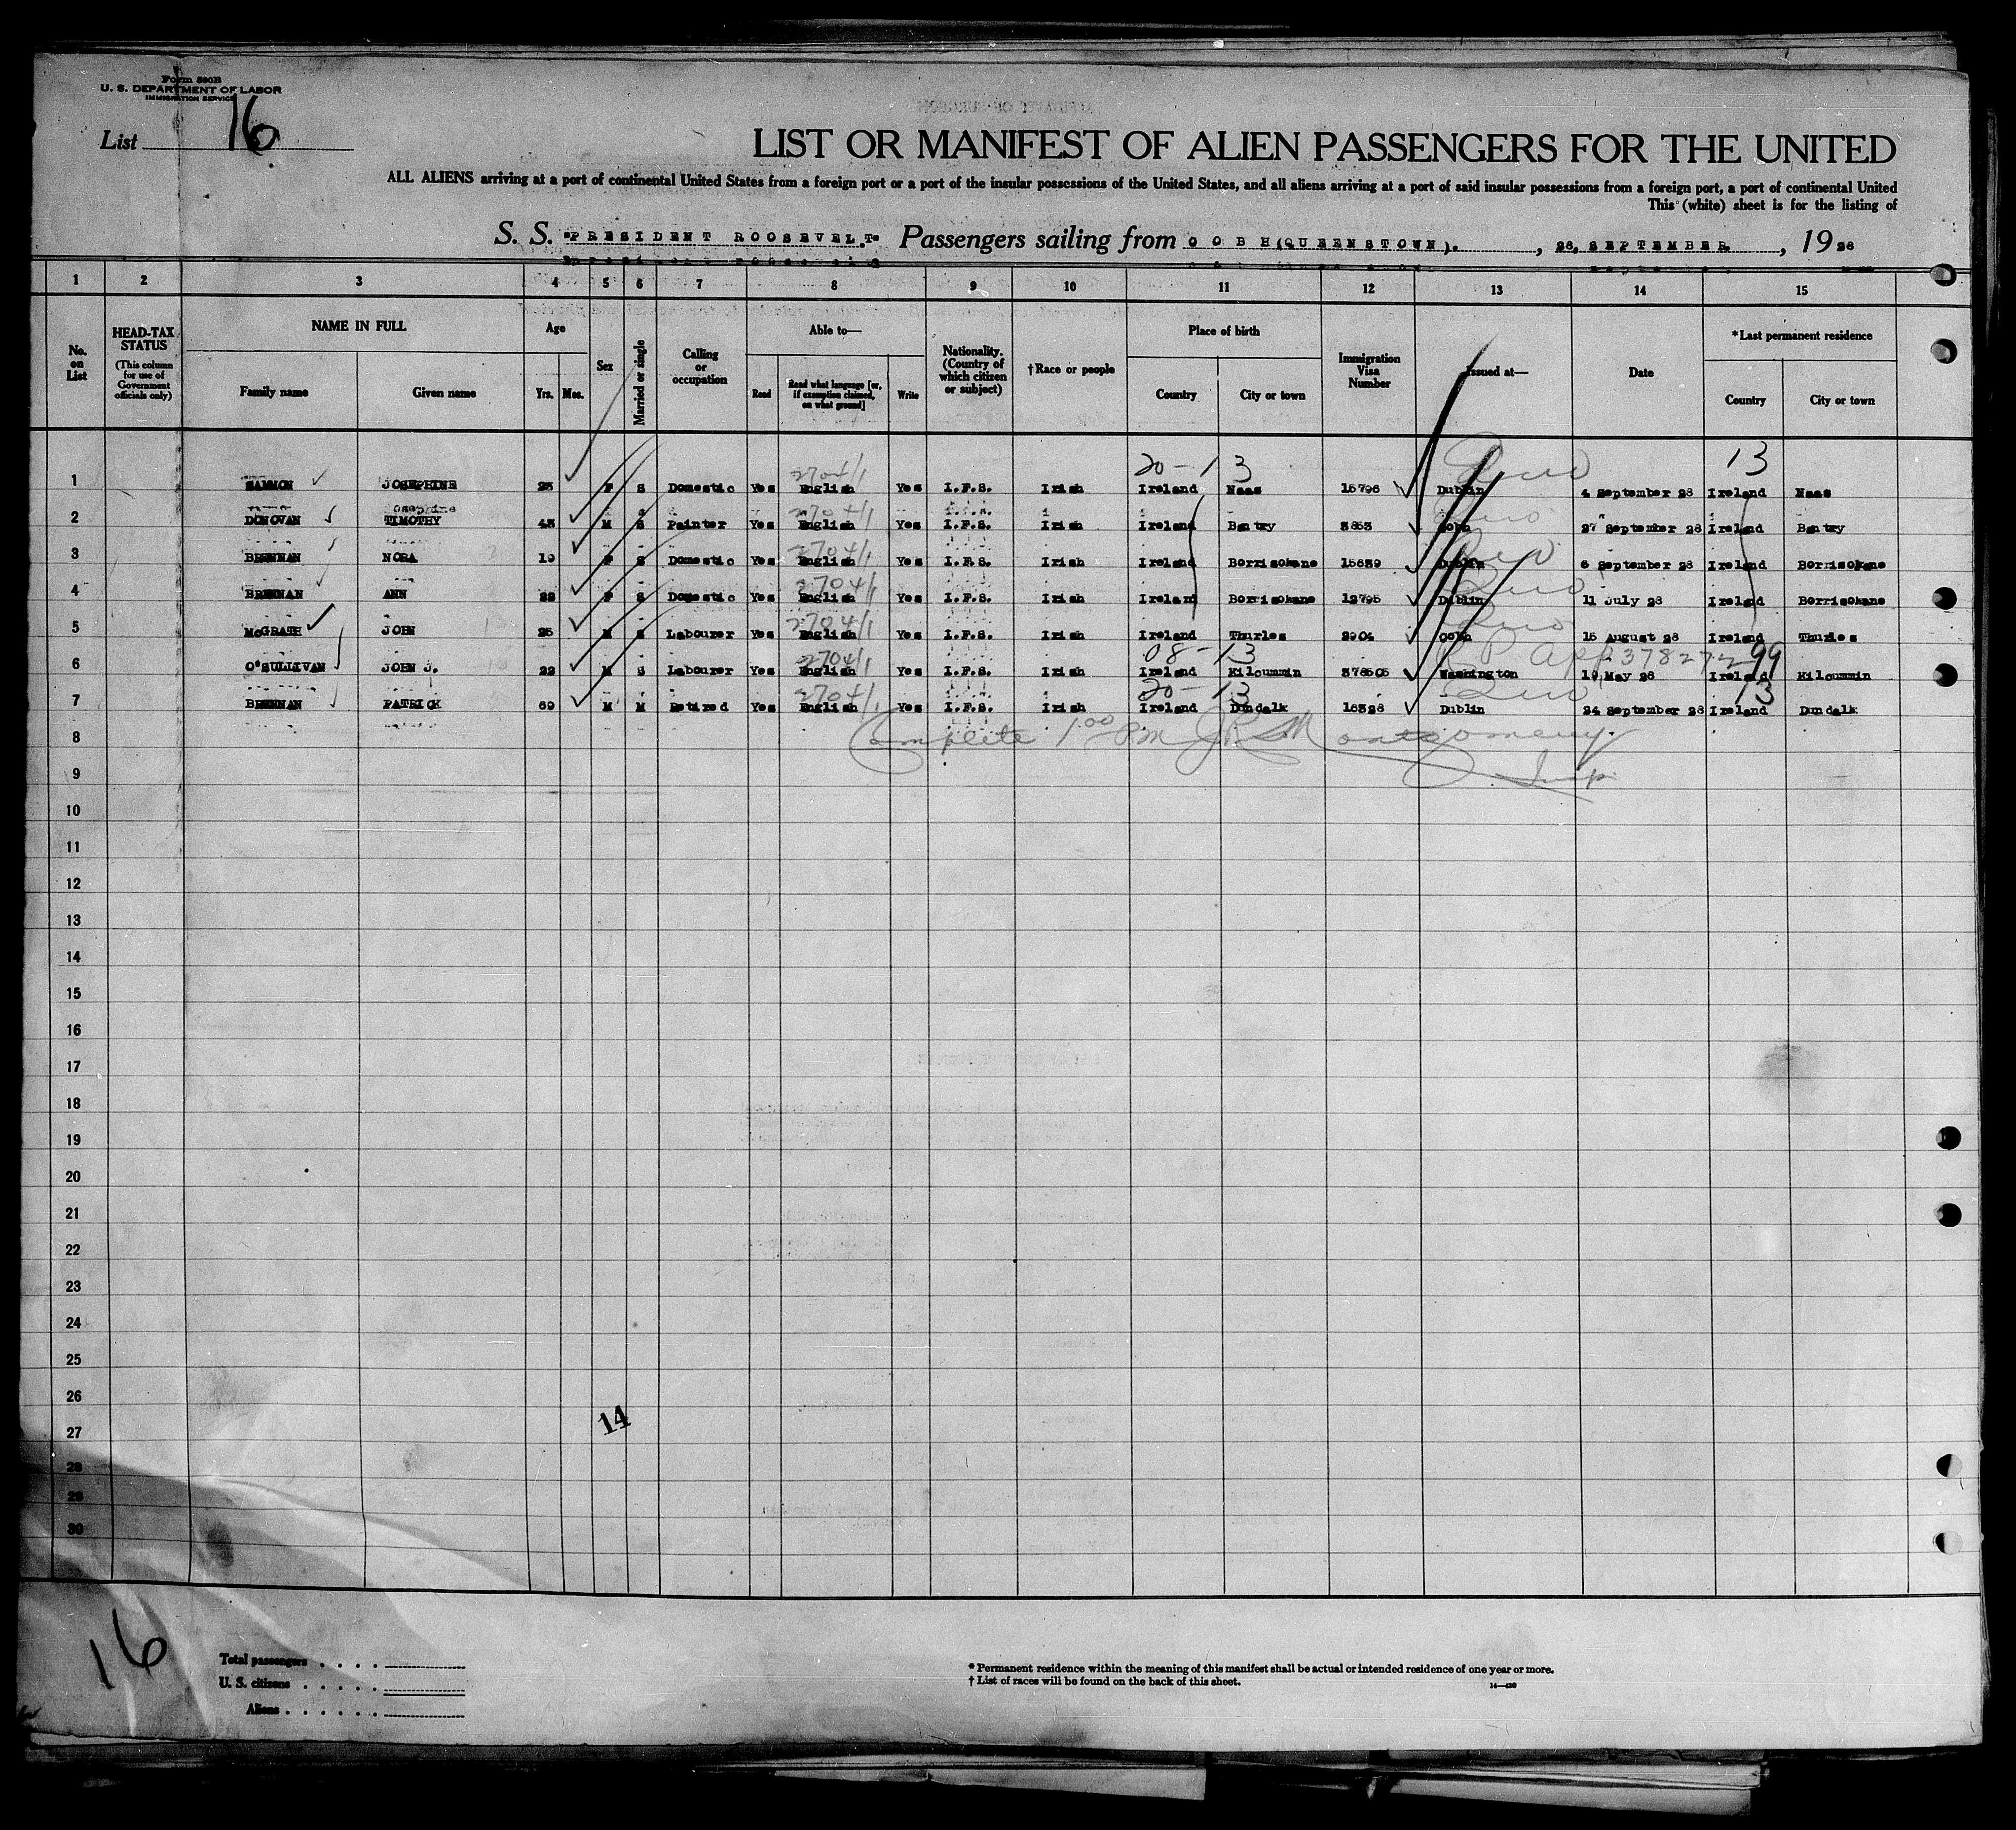 Form 500B
U. S. DEPARTMENT OF LABOR
IMMIGRATION SERVICE
List 16
LIST OR MANIFEST OF ALIEN PASSENGERS FOR THE UNITED
ALL ALIENS arriving at a port of continental United States from a foreign port or a port of the insular possessions of the United States, and all aliens arriving at a port of said insular possessions from a foreign port, a port of continental United
This (white) sheet is for the listing of
S. S. "PRESIDENT ROOSEVELT" Passengers sailing from COBH(QUEENSTOWN). , 28 SEPTEMBER , 19 28
1 2 3 4 5 6 7 8 9 10 11 12 13 14 15
No. on List
HEAD-TAX STATUS (This column for use of Government officials only)
NAME IN FULL
Family name Given name
Age
Yrs. Mos.
Sex
Married or single
Calling or occupation
Able to—
Read Read what language [or, if exemption claimed, on what ground] Write
Nationality. (Country of which citizen or subject)
†Race or people
Place of birth
Country City or town
Immigration Visa Number
Issued at—
Date
*Last permanent residence
Country City or town
2704/1 20-13 13
1 SAMMON JOSEPHINE 23 F S Domestic Yes English Yes I.F.S. Irish Ireland Naas 15796 Dublin 4 September 28 Ireland Naas
2704/1
2 DONOVAN TIMOTHY 43 M S Painter Yes English Yes I.F.S. Irish Ireland Bantry 3853 Cobh 27 September 28 Ireland Bantry
2704/1
3 BRENNAN NORA 19 F S Domestic Yes English Yes I.F.S. Irish Ireland Borrisokane 15639 Dublin 6 September 28 Ireland Borrisokane
2704/1
4 BRENNAN ANN 22 F S Domestic Yes English Yes I.F.S. Irish Ireland Borrisokane 12795 Dublin 11 July 28 Ireland Borrisokane
2704/1
5 McGRATH JOHN 25 M S Labourer Yes English Yes I.F.S. Irish Ireland Thurles 2904 Cobh 15 August 28 Ireland Thurles
2704/1 08-13 99
6 O'SULLIVAN JOHN J. 22 M S Labourer Yes English Yes I.F.S. Irish Ireland Kilcummin 378505 Washington 19 May 28 Ireland Kilcummin
2704/1 20-13 13
7 BRENNAN PATRICK 69 M M Retired Yes English Yes I.F.S. Irish Ireland Dundalk 16328 Dublin 24 September 28 Ireland Dundalk
8 Complete 1 00 PM J R Montgomery
9 Insp
10
11
12
13
14
15
16
17
18
19
20
21
22
23
24
25
26
14
27
28
29
30
16
Total passengers
U. S. citizens
Aliens
* Permanent residence within the meaning of this manifest shall be actual or intended residence of one year or more.
† List of races will be found on the back of this sheet.
14—430